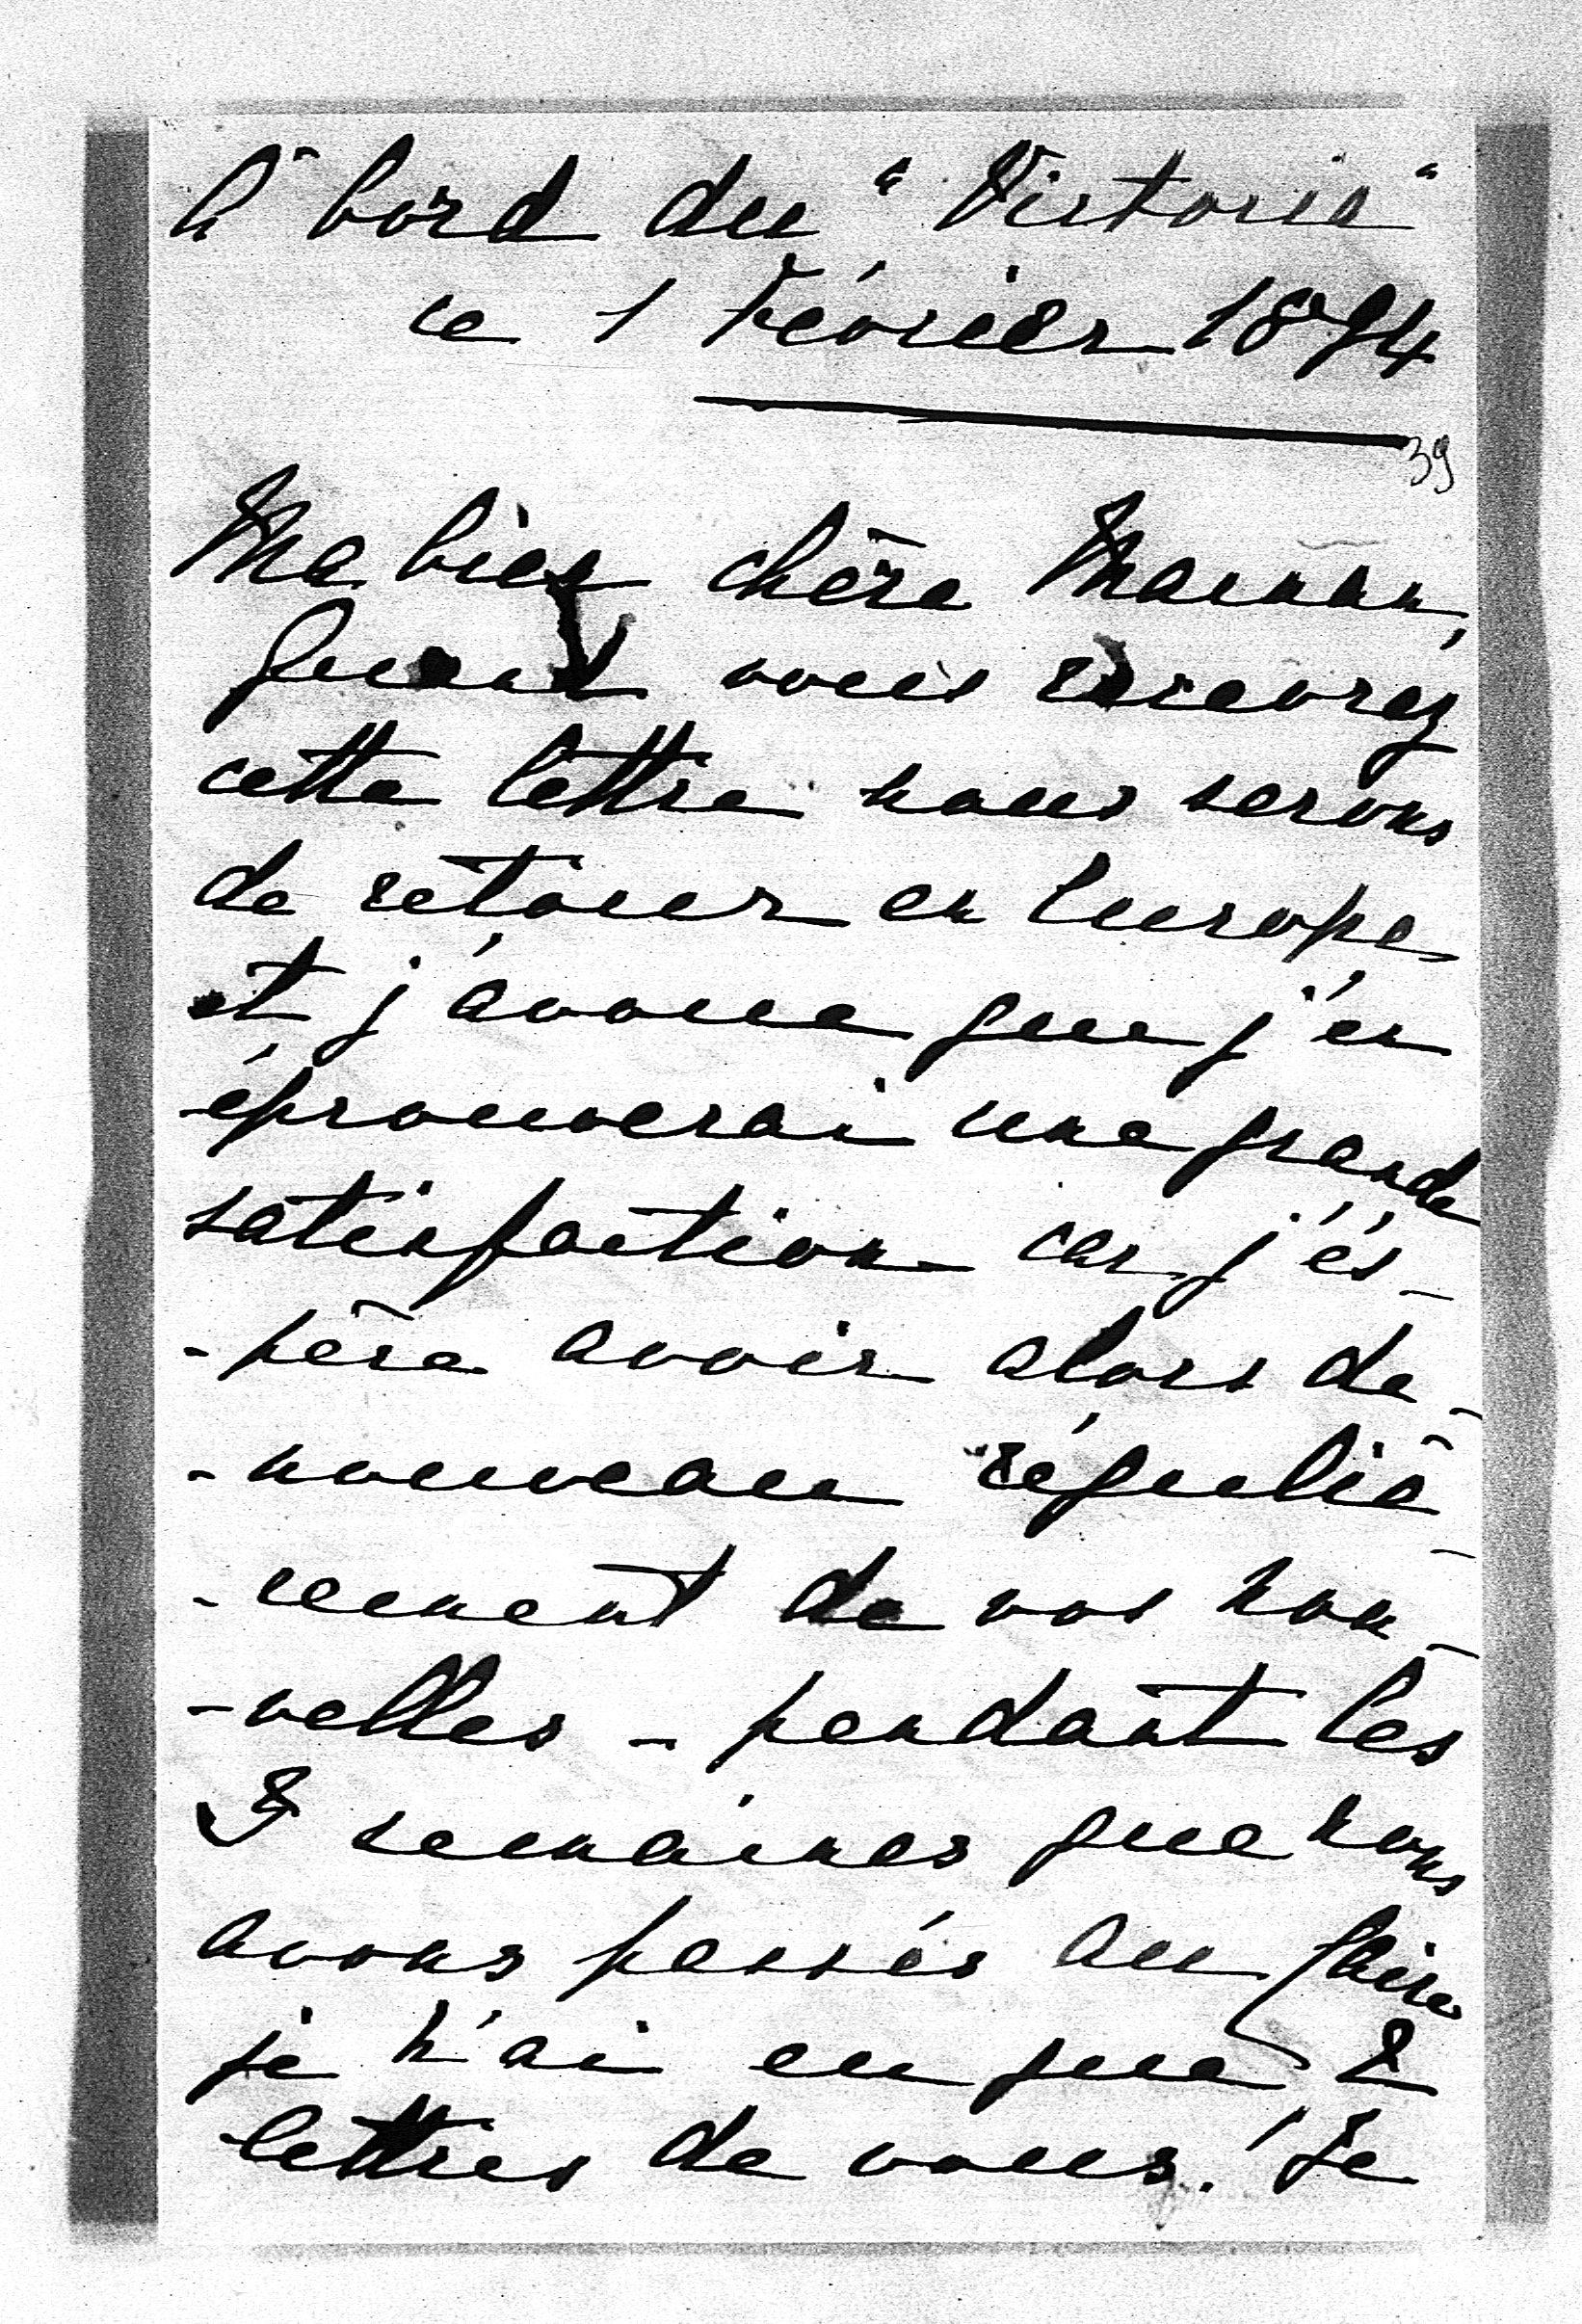 à bord du "Victoria"
ce 1 Février 1894
39
Ma bien chère Maman,
Quand vous recevrez
cette lettre nous serons
de retour en Europe
et j'avoue que j'en
éprouverai une grande
satisfaction car j'és-
-père avoir alors de-
-nouveau réguliè-
-rement de vos nou-
-velles - pendant les
8 semaines que nous
avons passés au Caire
je n'ai eu que 2
lettres de vous! Je